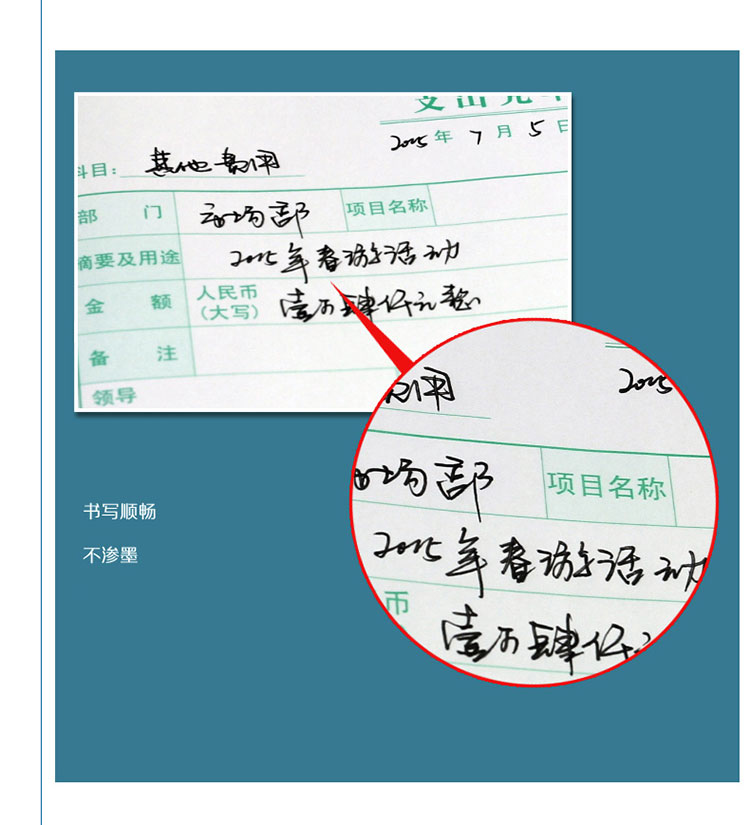 支出凭单
2015年7月5日
科目：其他费用
部 门 市场部 项目名称
摘要及用途 2015年春游活动
金 额 人民币（大写） 壹万肆仟元整
备 注
领导
费用 2015
市场部 项目名称
2015年春游活动
币 壹万肆仟元
书写顺畅
不渗墨